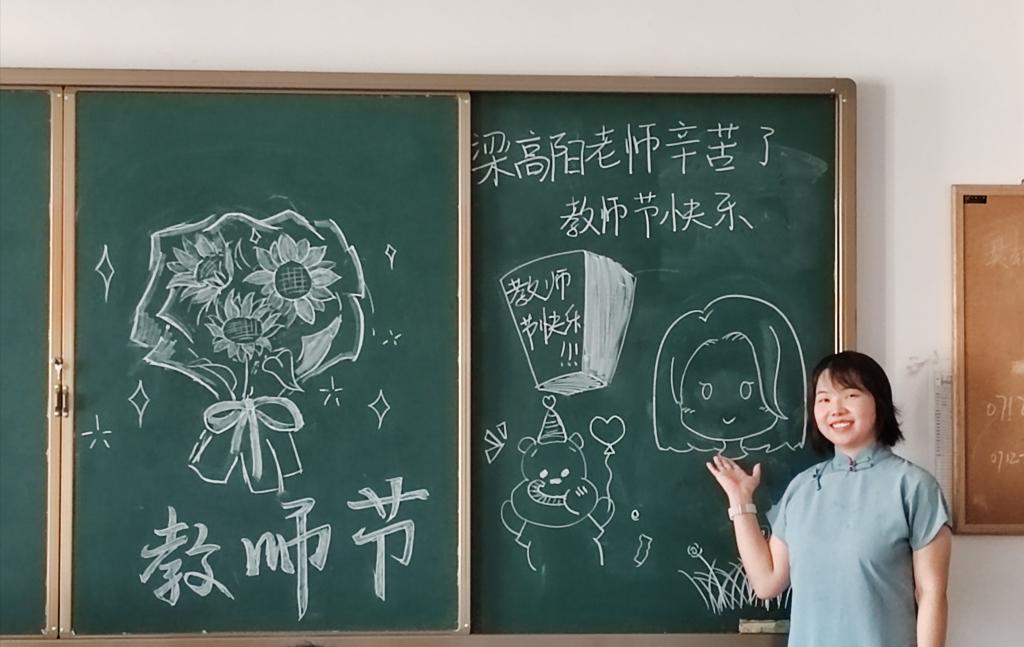 梁高阳老师辛苦了
教师节快乐
教师
节快乐
!!!
教师节
0712